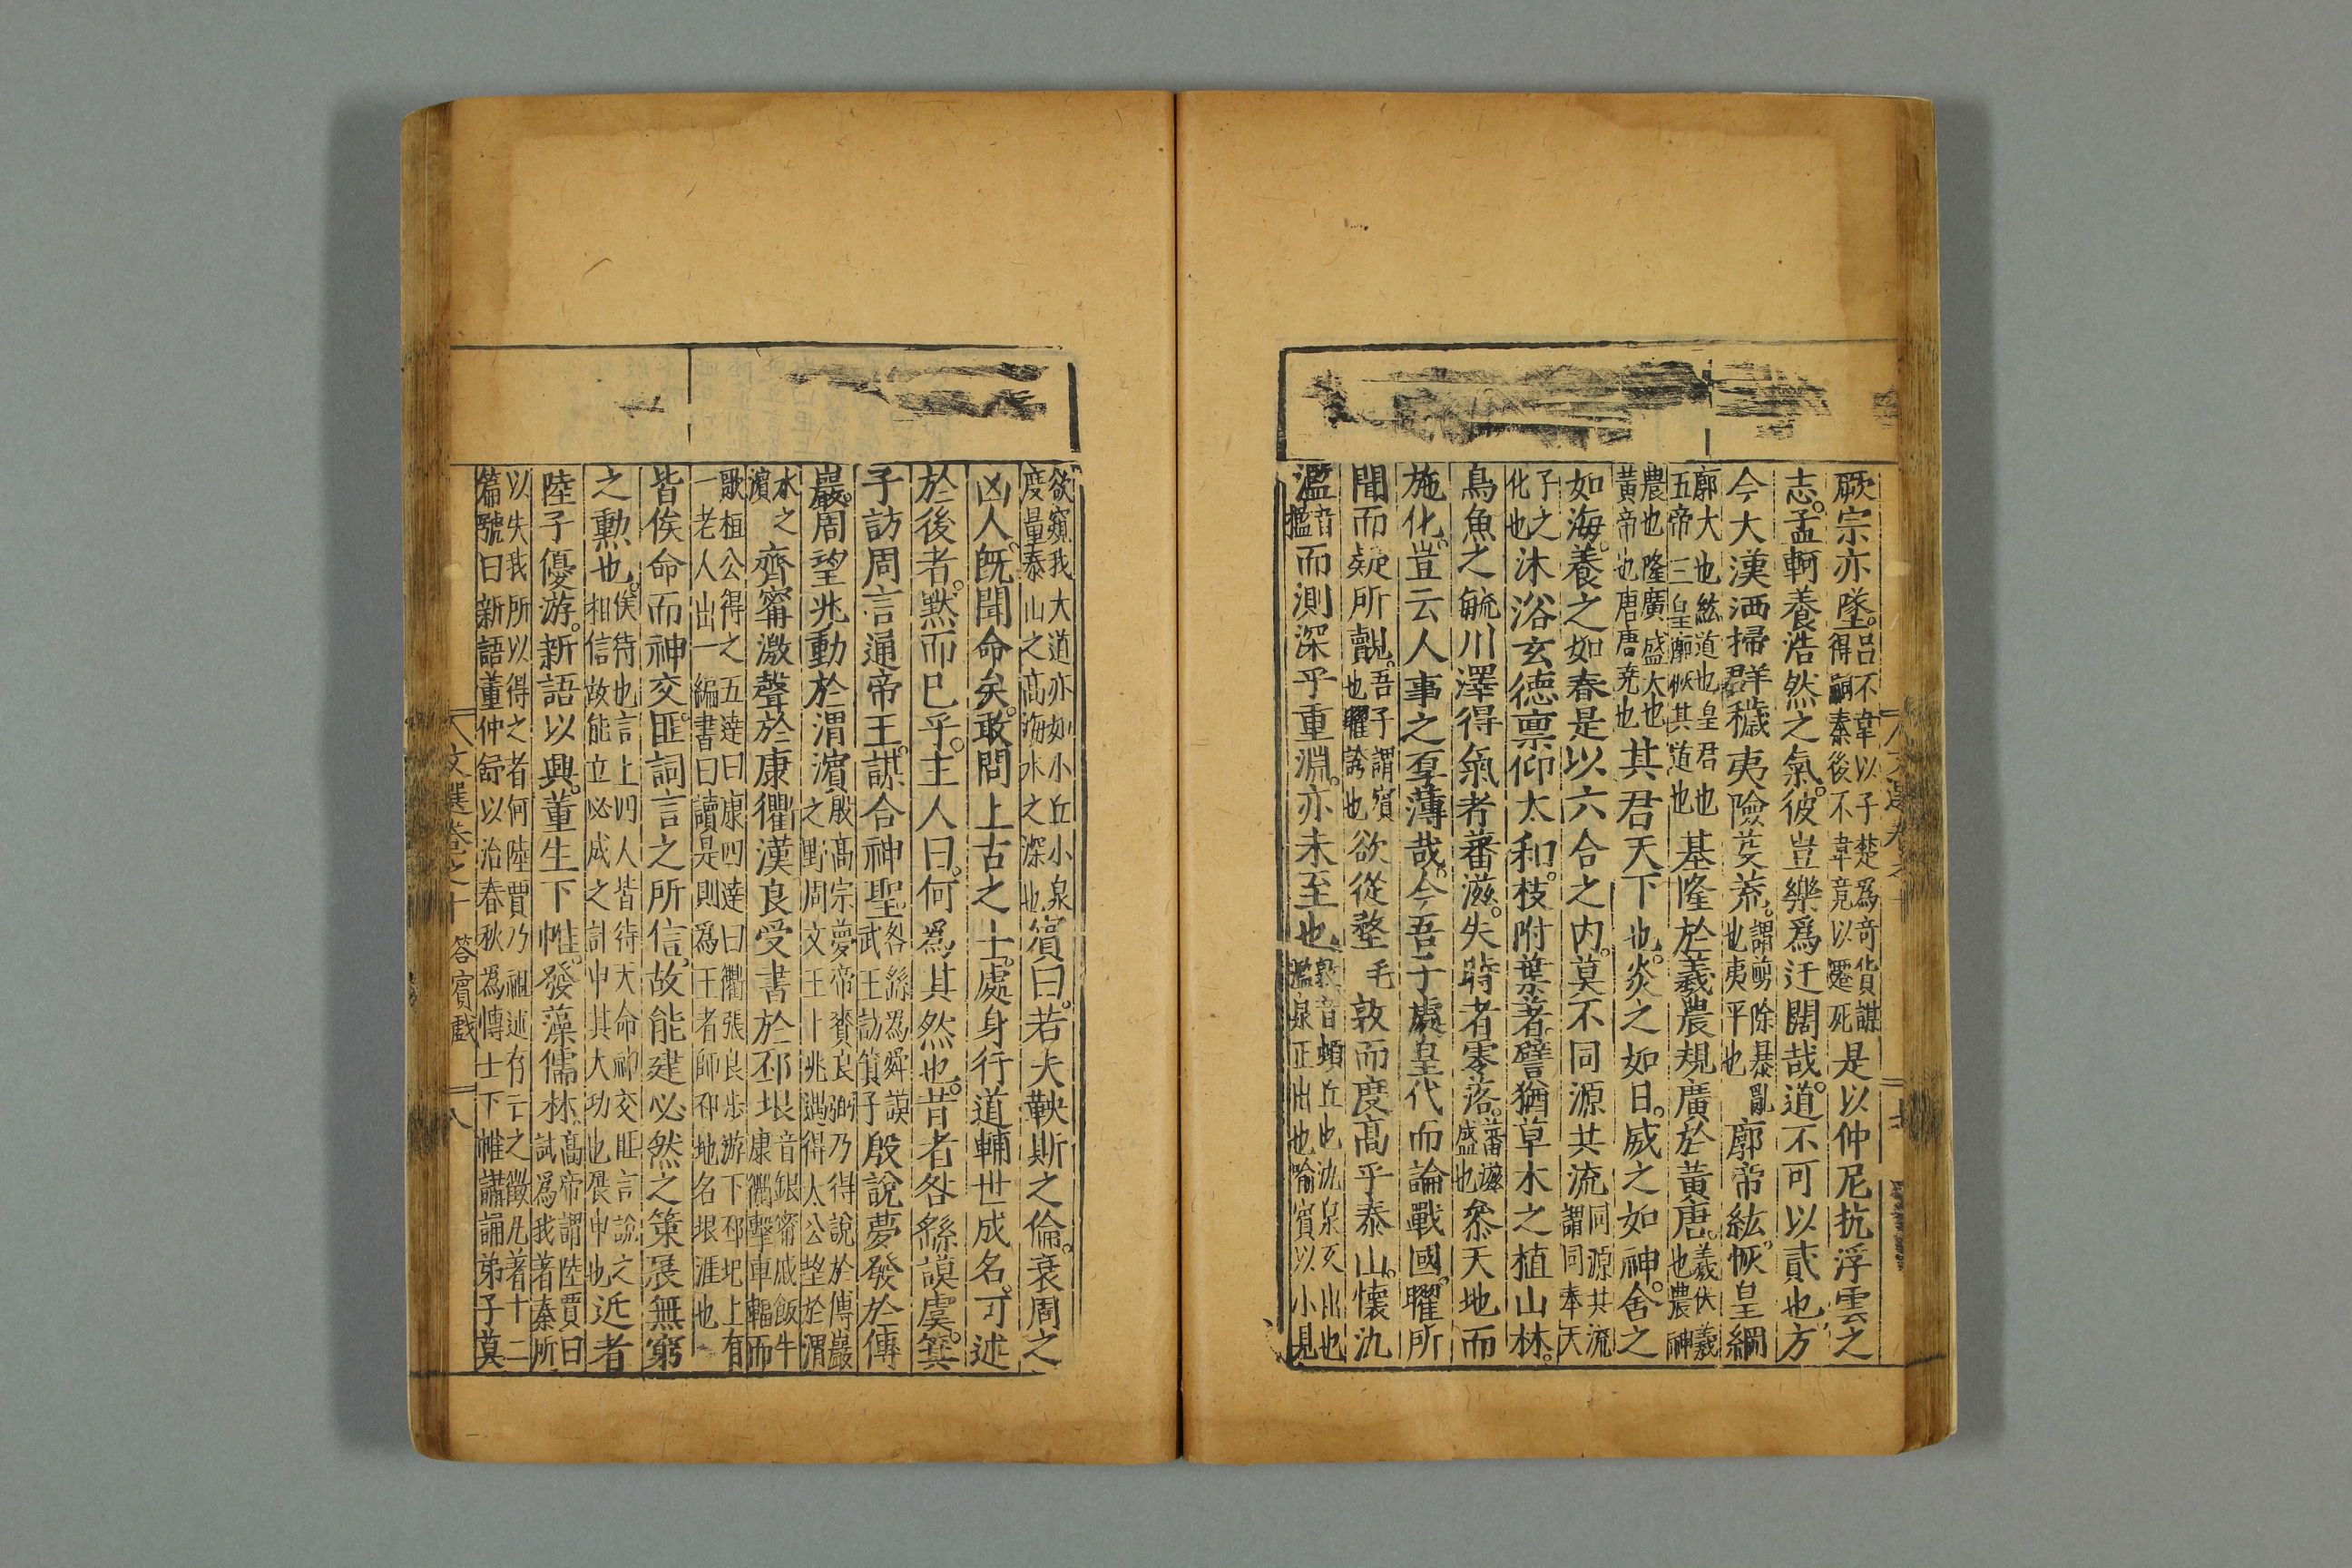 厥宗亦墜。呂不韋以子楚爲奇貨謀得嗣秦後不韋竟以遷死是以仲尼抗浮雲之
志。孟軻養浩然之氣。彼豈樂爲迂闊哉。道不可以貳也方
今大漢洒掃群穢夷險芟荒。謂剪除暴亂也夷平也廓帝紘。恢皇綱
廓大也紘道也皇君也五帝三皇廓恢其道也基隆於羲農規廣於黃唐。羲伏羲也農神
農也隆廣盛大也黃帝也唐唐堯也其君天下也。炎之如日。威之如神。舍之
如海。養之如春是以六合之内。莫不同源共流同源共流謂同奉天
子之化也沐浴玄德禀仰太和。枝附葉著。譬猶草木之植山林。
鳥魚之毓川澤得氣者蕃滋。失時者零落。蕃滋盛也叅天地而
施化。豈云人事之厚薄哉。今吾子處皇代而論戰國。曜所
聞而疑所覿。吾子謂賓也曜誇也欲從堥毛敦而度高乎泰山。懷氿
濫音檻而測深乎重淵。亦未至也。敦音頓丘也氿泉仄出也濫泉正出也喻賓以小見
欲窺我大道亦如小丘小泉度量泰山之高海水之深也賓曰。若夫鞅斯之倫。衰周之
凶人。旣聞命矣。敢問上古之士。處身行道輔世成名。可述
於後者。默而已乎。主人曰。何爲其然也。昔者咎繇謨虞。箕
子訪周言通帝王。謀合神聖咎繇為舜謨武王訪箕子殷說夢發於傅
巖。周望兆動於渭濱殷高宗夢帝賚良弼乃得說於傅巖之野周文王卜兆遇得太公望於渭
水之濱齊甯激聲於康衢漢良受書於邳垠音銀甯戚飯牛康衢擊車輻而
歌桓公得之五達曰康四達曰衢張良步游下邳圯上有一老人出一編書曰讀是則爲王者師邳地名垠涯也
皆俟命而神交。匪詞言之所信。故能建必然之策展無窮
之勳也。俟待也言上四人皆待天命神交匪言說之相信故能立必成之計申其大功也展申也近者
陸子優游。新語以興。董生下帷。發藻儒林高帝謂陸賈曰試爲我著秦所
以失我所以得之者何陸賈乃祖述存亡之徵凡著十二篇號曰新語董仲舒以治春秋爲博士下帷講誦弟子莫
文選卷之十 答賓戲 八